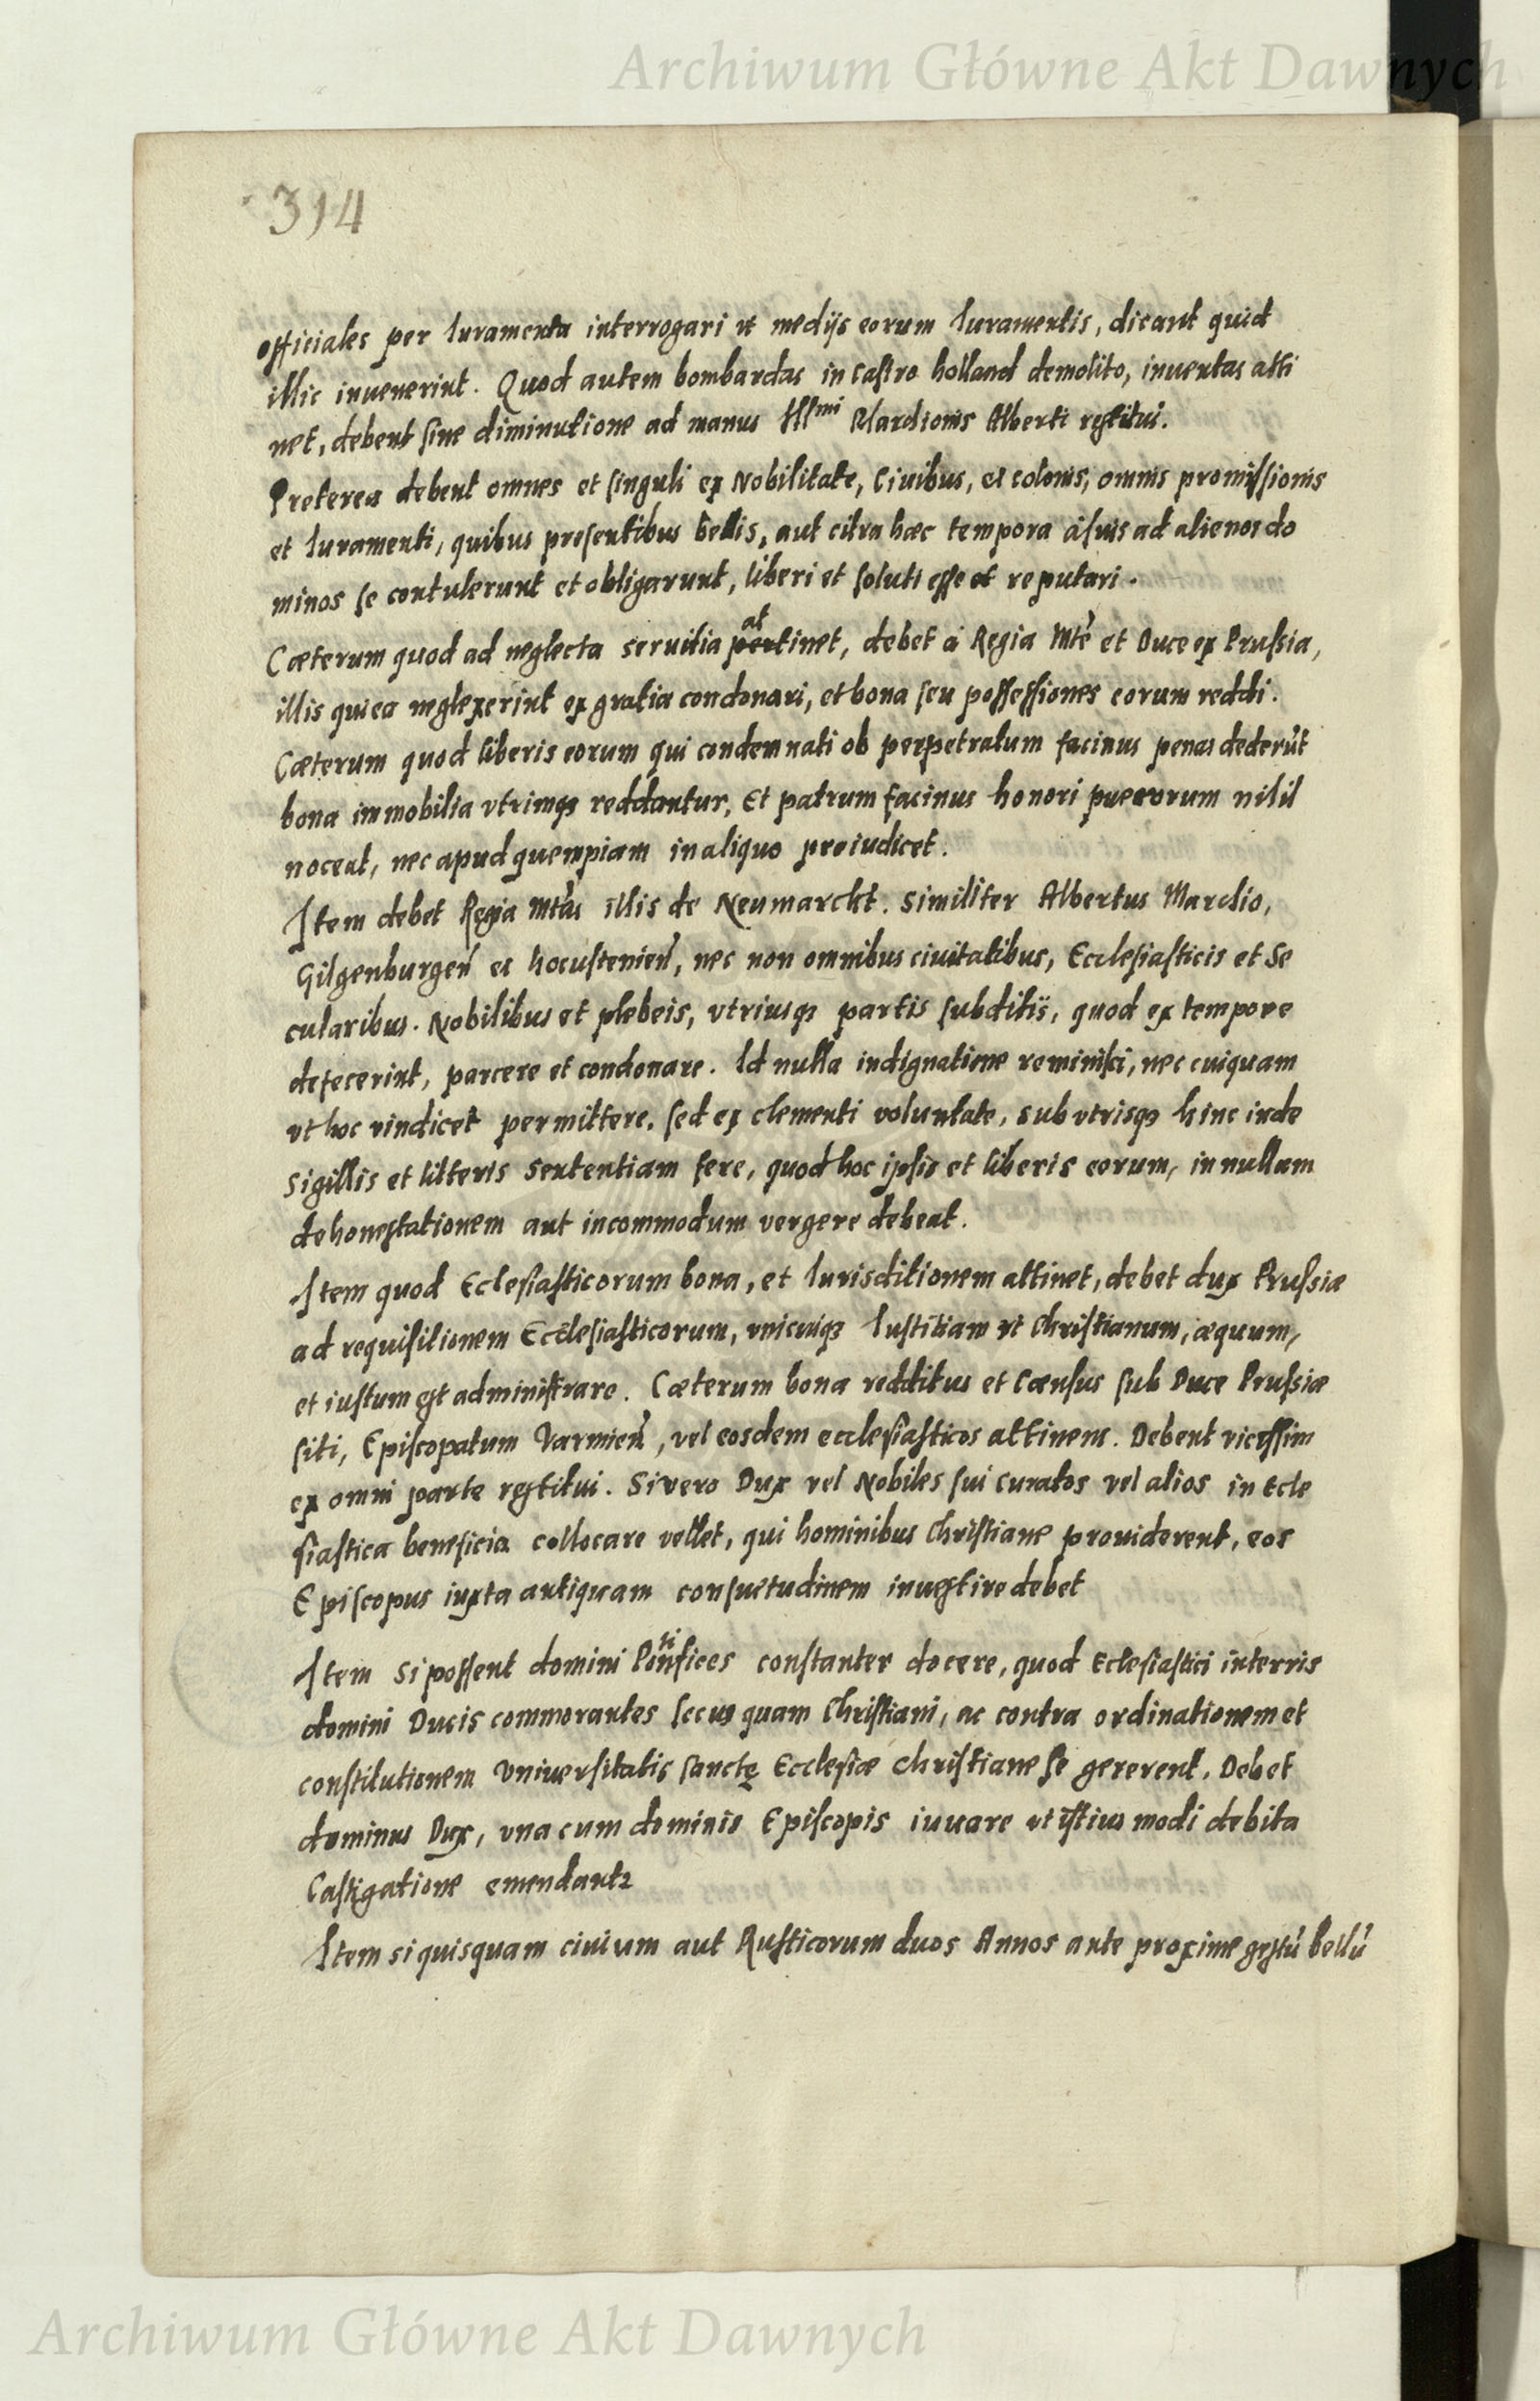 Archiwum Główne Akt Dawnych
314
officiales per Iuramenta interrogari vt medijs eorum Iuramentis, dicant quid
illic inuenerint. Quod autem bombardas in castro holland demolito, inuentas atti
net, debent sine diminutione ad manus Ill^mi Marchionis Alberti restitui.
Preterea debent omnes et singuli ex Nobilitate, Ciuibus, et colonis, omnis promissionis
et Iuramenti, quibus presentibus bellis, aut citra hæc tempora à suis ad alienos do
minos se contulerunt et obligarunt, liberi et soluti esse et reputari.
at
Cæterum quod ad neglecta seruitia pertinet, debet à Regia Mte et Duce ex Prussia,
illis qui ea neglexerint ex gratia condonari, et bona seu possessiones eorum reddi.
Cæterum quod liberis eorum qui condemnati ob perpetratum facinus penas dederūt
bona immobilia vtrimqꝫ reddantur, Et patrum facinus honori puerorum nihil
noceat, nec apud quempiam in aliquo preiudicet.
Item debet Regia Mtas illis de Neumarckt. Similiter Albertus Marchio,
Gilgenburgen̄ et hocustenien̄, nec non omnibus ciuitatibus, Ecclesiasticis et Se
cularibus. Nobilibus et plebeis, vtriusqꝫ partis subditis, quod ex tempore
defecerint, parcere et condonare. Id nulla indignatione reminisci, nec cuiquam
vt hoc vindicet permittere. sed ex clementi voluntate, sub vtrisqꝫ hinc inde
sigillis et litteris sententiam fere, quod hoc ipsis et liberis eorum, in nullam
dehonestationem aut incommodum vergere debeat.
Item quod Eclesiasticorum bona, et Iurisditionem attinet, debet dux Prussiæ
ad requisitionem Ecclesiasticorum, vnicuiqꝫ Iustitiam vt Christianum, æquum,
et iustum est administrare. Cæterum bona redditus et Cænsus sub Duce Prussiæ
siti, Episcopatum Varmien̄, vel eosdem ecclesiasticos attinens. Debent vicissim
ex omni parte restitui. Si vero Dux vel Nobiles sui curatos vel alios in Ecle
siastica beneficia collocare vellet, qui hominibus Christiane prouiderent, eos
Episcopus iuxta antiquam consuetudinem inuestire debet
ti
Item si possent domini Ponfices constanter docere, quod Eclesiastici in terris
domini Ducis commorantes secus quam Christiani, ac contra ordinationem et
constitutionem Vniuersitatis sanctę Ecclesiæ christiane se gererent. Debet
dominus Dux, vna cum dominis Episcopis iuuare vt istius modi debita
Castigatione emendantꝛ
Item si quisquam ciuium aut Rusticorum duos Annos ante proxime gestū bellū
Archiwum Główne Akt Dawnych